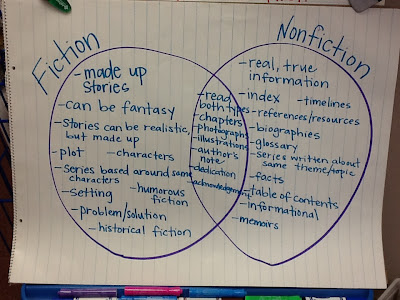 Fiction
Nonfiction
-made up
stories
-can be fantasy
-Stories can be realistic,
but made up
-plot -characters
-Series based around same
characters
-Setting -humorous
fiction
-problem/solution
-historical fiction
-read
both types
-chapters
-photographs
-illustrations
-author's
note
-dedication
-acknowledgments
-real, true
information
-index -timelines
-references/resources
-biographies
-glossary
-Series written about
same theme/topic
-facts
-table of contents
-informational
-memoirs